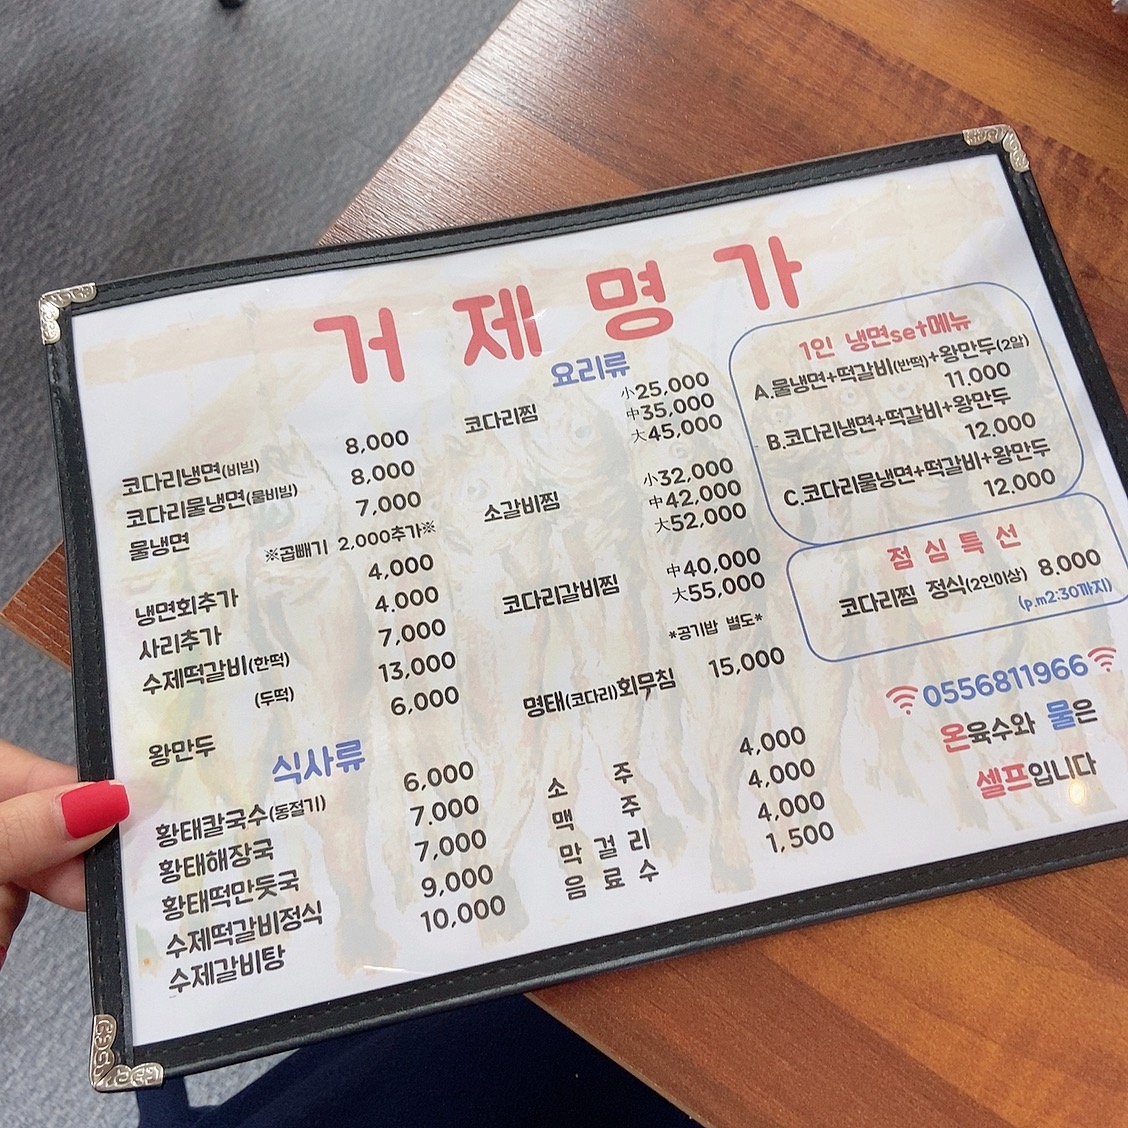 거제명가
코다리냉면(비빔) 8,000
코다리물냉면(물비빔) 8,000
물냉면 7,000
※곱빼기 2,000추가※
냉면회추가 4,000
사리추가 4,000
수제떡갈비(한떡) 7,000
(두떡) 13,000
왕만두 6,000
식사류
황태칼국수(동절기) 6,000
황태해장국 7,000
황태떡만둣국 7,000
수제떡갈비정식 9,000
수제갈비탕 10,000
요리류
코다리찜 小25,000
中35,000
大45,000
소갈비찜 小32,000
中42,000
大52,000
코다리갈비찜 中40,000
大55,000
*공기밥 별도*
명태(코다리)회무침 15,000
소 주 4,000
맥 주 4,000
막 걸 리 4,000
음 료 수 1,500
1인 냉면set메뉴
A.물냉면+떡갈비(반떡)+왕만두(2알)
11.000
B.코다리냉면+떡갈비+왕만두
12.000
C.코다리물냉면+떡갈비+왕만두
12.000
점 심 특 선
코다리찜 정식(2인이상) 8.000
(p.m2:30까지)
0556811966
온육수와 물은
셀프입니다